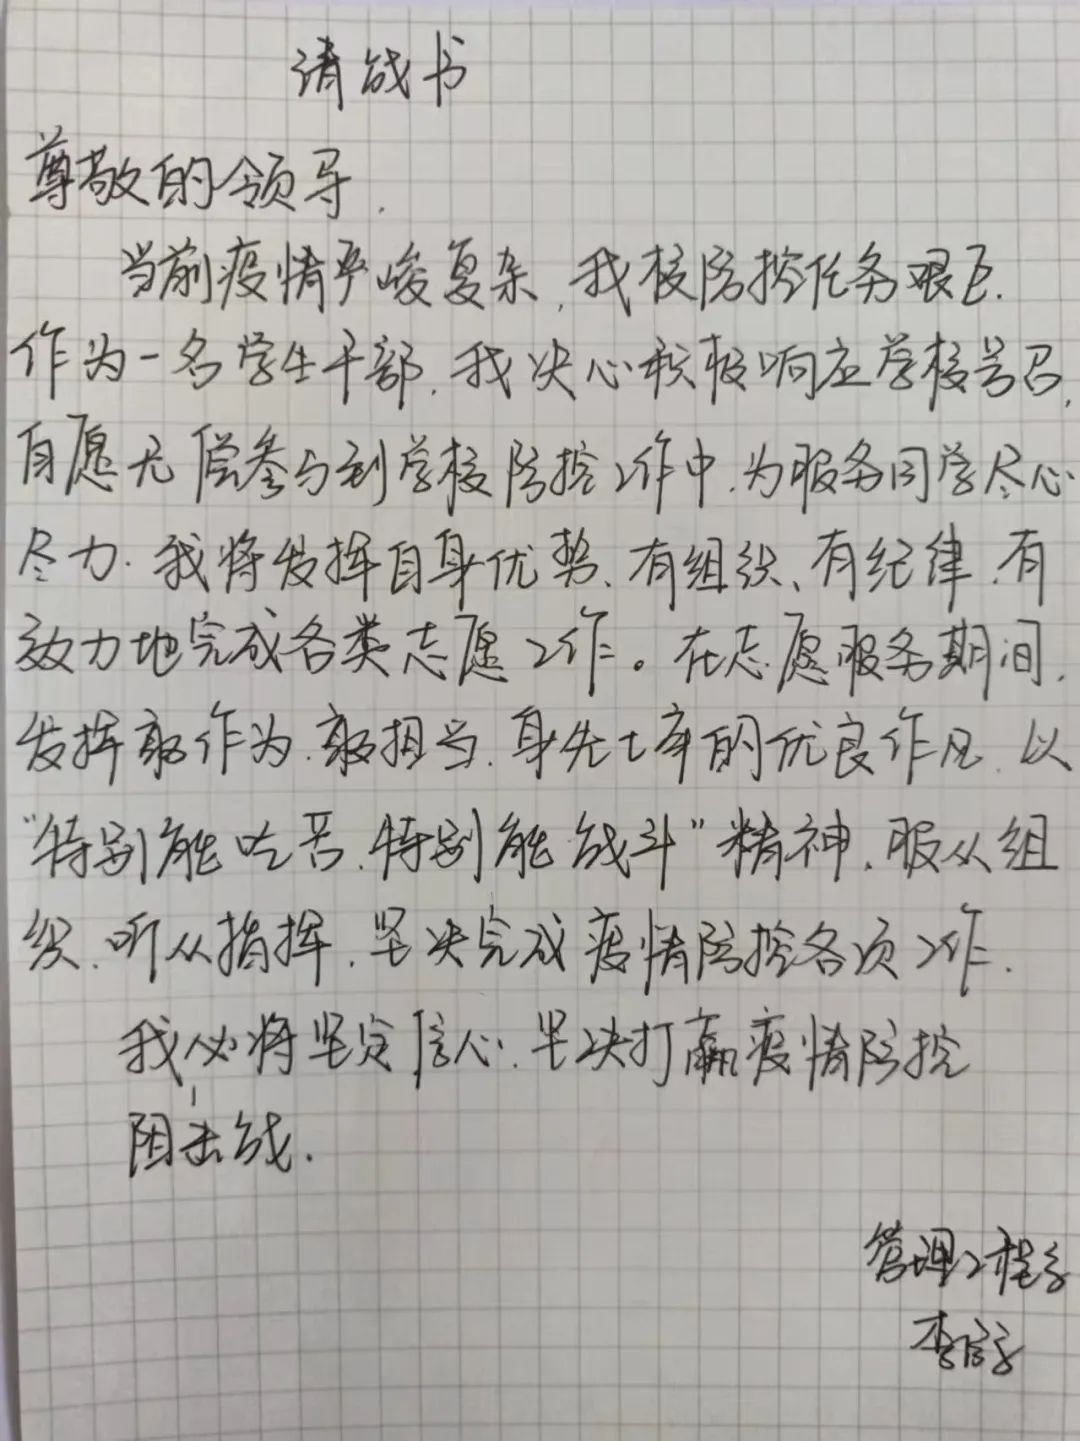 请战书
尊敬的领导.
当前疫情严峻复杂,我校防控任务艰巨.
作为一名学生干部,我决心积极响应学校号召,
自愿无偿参与到学校防控工作中,为服务同学尽心
尽力.我将发挥自身优势、有组织、有纪律、有
效力地完成各类志愿工作。在志愿服务期间,
发挥敢作为、敢担当、身先士卒的优良作风,以
“特别能吃苦,特别能战斗”精神,服从组
织、听从指挥,坚决完成疫情防控各项工作.
我必将坚定信心,坚决打赢疫情防控
阻击战.
管理工程学
李